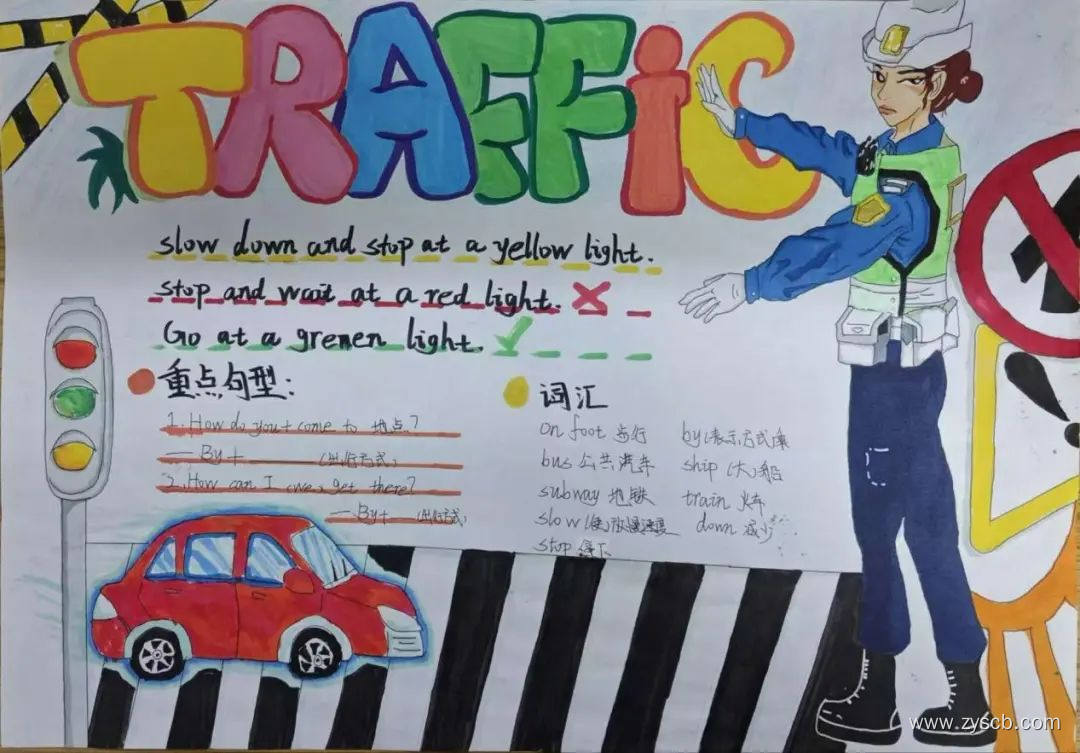 TRAFFIC
slow down and stop at a yellow light.
stop and wait at a red light.
Go at a gremen light.
重点句型:
1. How do you + come to 地点?
— By + ______ (出行方式)
2. How can I (we) get there?
— By + ___ (出行方式)
词汇
on foot 步行 by (表示方式)乘
bus 公共汽车 ship (大)船
subway 地铁 train 火车
slow down 减少
stop 停下
www.zyscb.com